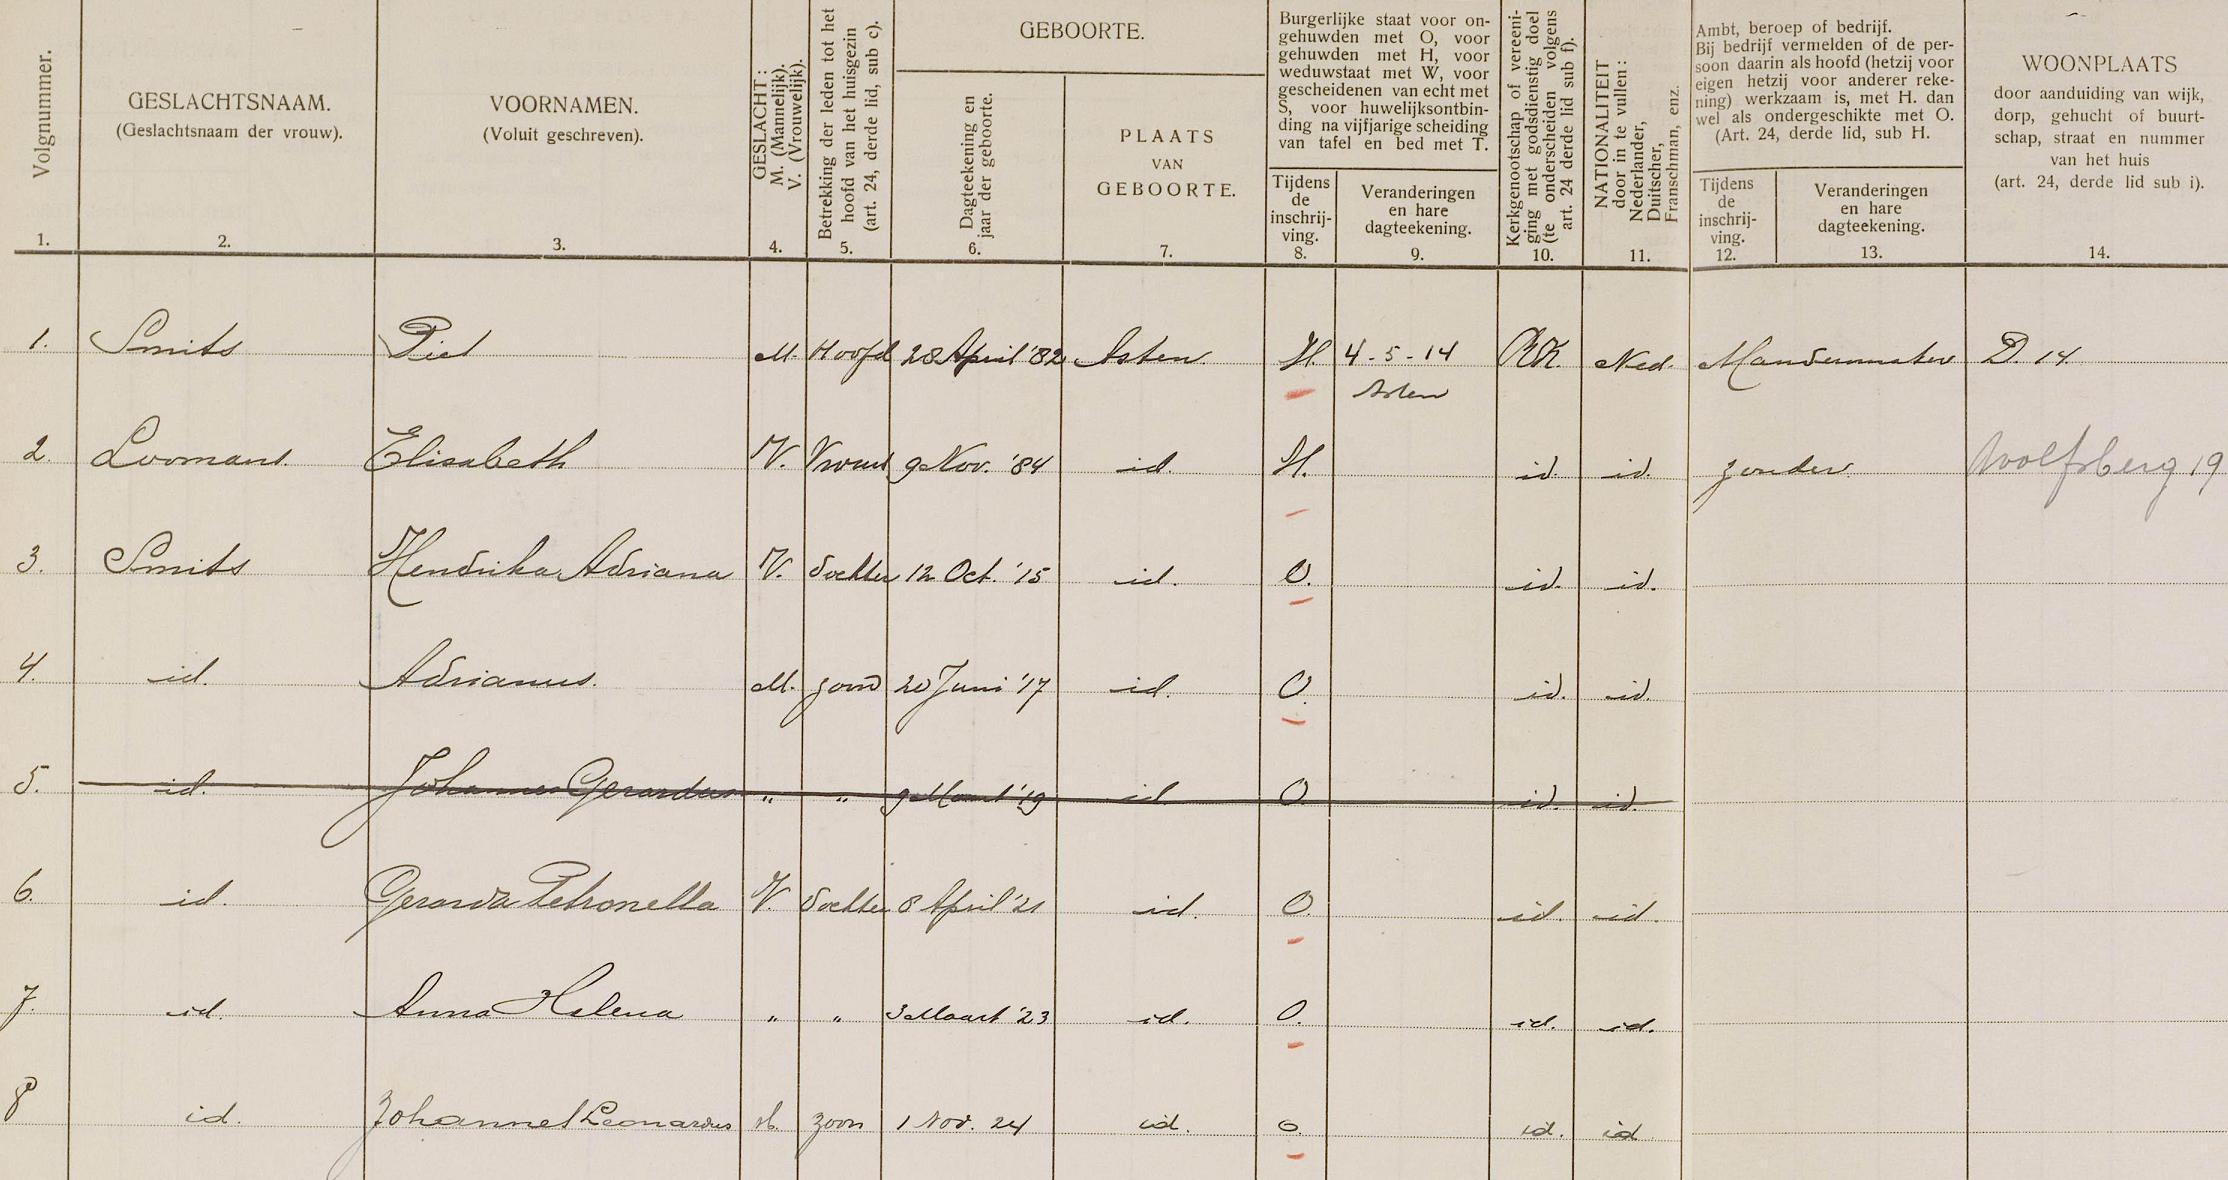 Volgnummer.
1.
GESLACHTSNAAM.
(Geslachtsnaam der vrouw).
2.
VOORNAMEN.
(Voluit geschreven).
3.
GESLACHT:
M. (Mannelijk).
V. (Vrouwelijk).
4.
Betrekking der leden tot het
hoofd van het huisgezin
(art. 24, derde lid, sub c).
5.
GEBOORTE.
Dagteekening en
jaar der geboorte.
6.
PLAATS
VAN
GEBOORTE.
7.
Burgerlijke staat voor on-
gehuwden met O, voor
gehuwden met H, voor
weduwstaat met W, voor
gescheidenen van echt met
S, voor huwelijksontbin-
ding na vijfjarige scheiding
van tafel en bed met T.
Tijdens
de
inschrij-
ving.
8.
Veranderingen
en hare
dagteekening.
9.
Kerkgenootschap of vereeni-
ging met godsdienstig doel
(te onderscheiden volgens
art. 24 derde lid sub f).
10.
NATIONALITEIT
door in te vullen:
Nederlander,
Duitscher,
Franschman, enz.
11.
Ambt, beroep of bedrijf.
Bij bedrijf vermelden of de per-
soon daarin als hoofd (hetzij voor
eigen hetzij voor anderer reke-
ning) werkzaam is, met H. dan
wel als ondergeschikte met O.
(Art. 24, derde lid, sub H.
Tijdens
de
inschrij-
ving.
12.
Veranderingen
en hare
dagteekening.
13.
WOONPLAATS
door aanduiding van wijk,
dorp, gehucht of buurt-
schap, straat en nummer
van het huis
(art. 24, derde lid sub i).
14.
1. Smits Piet M. Hoofd 28 April '82 Asten. H. 4-5-14 RK. Ned. Mandenmaker D. 14.
Asten
2. Loomans. Elisabeth V. Vrouw 9 Nov. '84 id. H. id. id. zonder. Wolfsberg 19
3. Smits Hendrika Adriana V. dochter 12 Oct. '15 id. O. id. id.
4. id. Adrianus. M. zoon 20 Juni '17 id. O. id. id.
5. id. Johannes Gerardus " " 9 Maart '19 id O. id. id.
6. id. Gerarda Petronella V. dochter 8 April '21 id. O. id. id.
7. id. Anna Helena " " 3 Maart '23 id. O. id. id.
8 id. Johannes Leonardus M. zoon 1 Nov. 24 id. o id. id